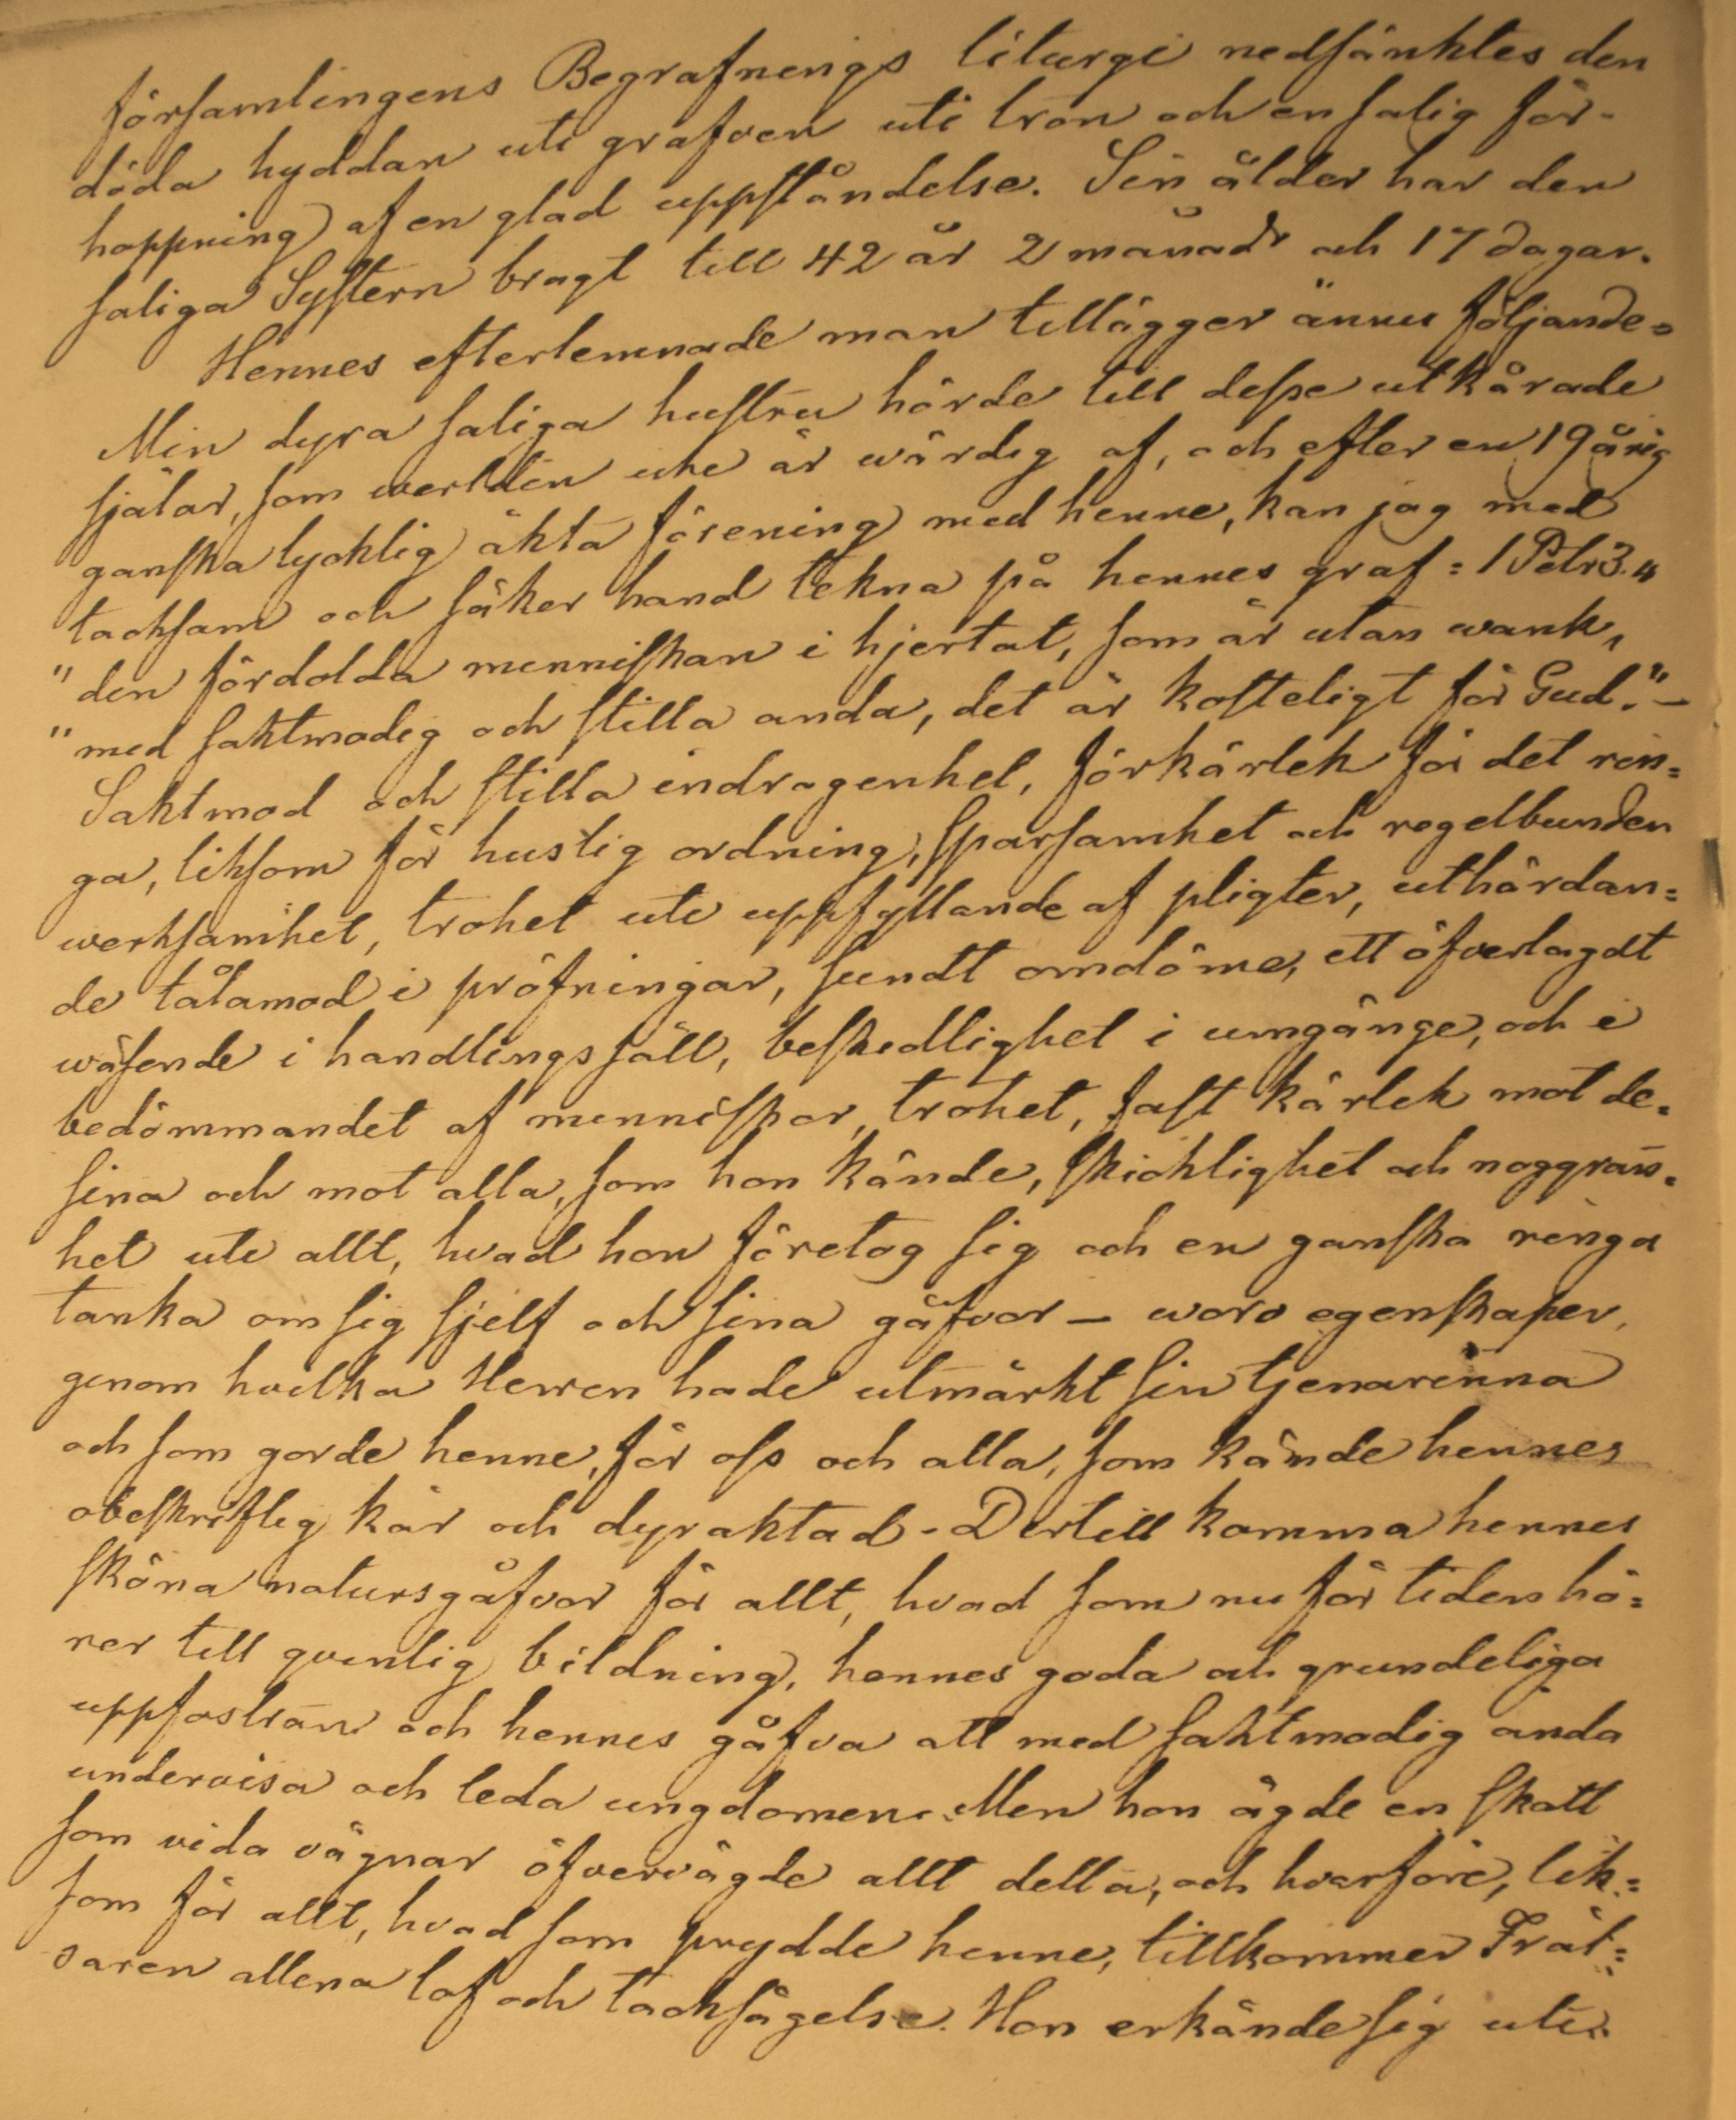 församlingens Begrafnings liturgi nedsänktes den
döda hyddan uti grafven uti tron och en salig för-
hoppning af en glad uppståndelse. Sin ålder har den
saliga Systern bragt till 42 år 2 månadr och 17 dagar.
Hennes efterlemnade man tillägger ännu följande=
Min dyra saliga hustru hörde till desse utkårade
själar, som verlden icke är wärdig af, och efter en 19 årig
ganska lycklig äkta förening med henne, kan jag med
tacksam och säker hand tekna på hennes graf: 1 Petr 3.4
"den fördolda menniskan i hjertat, som är utan wank,
"med saktmodig och stilla anda, det är kosteligt för Gud." –
Saktmod och stilla indragenhet, förkärlek för det rin=
ga, liksom för huslig ordning, sparsamhet och regelbunden
werksamhet, trohet uti uppfyllande af pligter, uthärdan=
de tålamod i pröfningar, sundt omdöme, ett öfverlagdt
wäsende i handlingssätt, beskedlighet i umgänge, och i
bedömmandet af menniskor, trohet, fast kärlek mot de=
sina och mot alla, som hon kände, skicklighet och noggran=
het uti allt, hvad hon företog sig och en ganska ringa
tanka om sig sjelf och sina gåfvor – woro egenskaper,
genom hvilka Herren hade utmärkt sin tjenarinna
och som gorde henne, för oss och alla, som kände hennes
obeskriflig kär och dyraktad - Dertill komma hennes
sköna natursgåfvor för allt, hvad som nu för tiden hö=
rer till qvinlig bildning, hennes goda och grundeliga
uppfostran och hennes gåfva att med saktmodig anda
undervisa och leda ungdomen. Men hon ägde en skatt
som vida vägnar öfvervägde allt detta, och hvarföre, lik=
som för allt, hvad som prydde henne, tillkommer Fräl=
saren allena lof och tacksägelse. Hon erkände sig uti